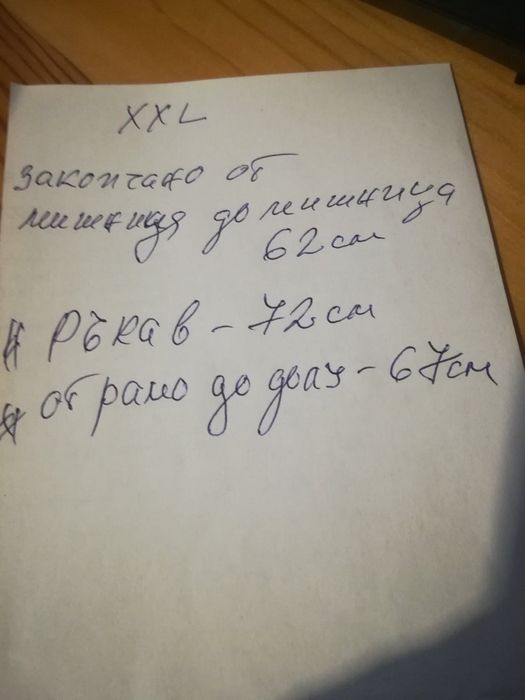 XXL
закопчано от
мишница до мишница
62см
Ръкав - 72см
от рамо до долу - 67см